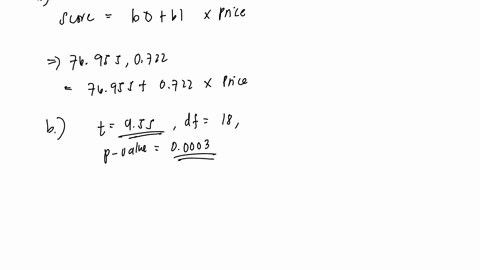 Score = b0 + b1 × Price
⇒) 76.955, 0.722
= 76.955 + 0.722 × Price
b.) t = 9.55, df = 18,
p-value = 0.0003